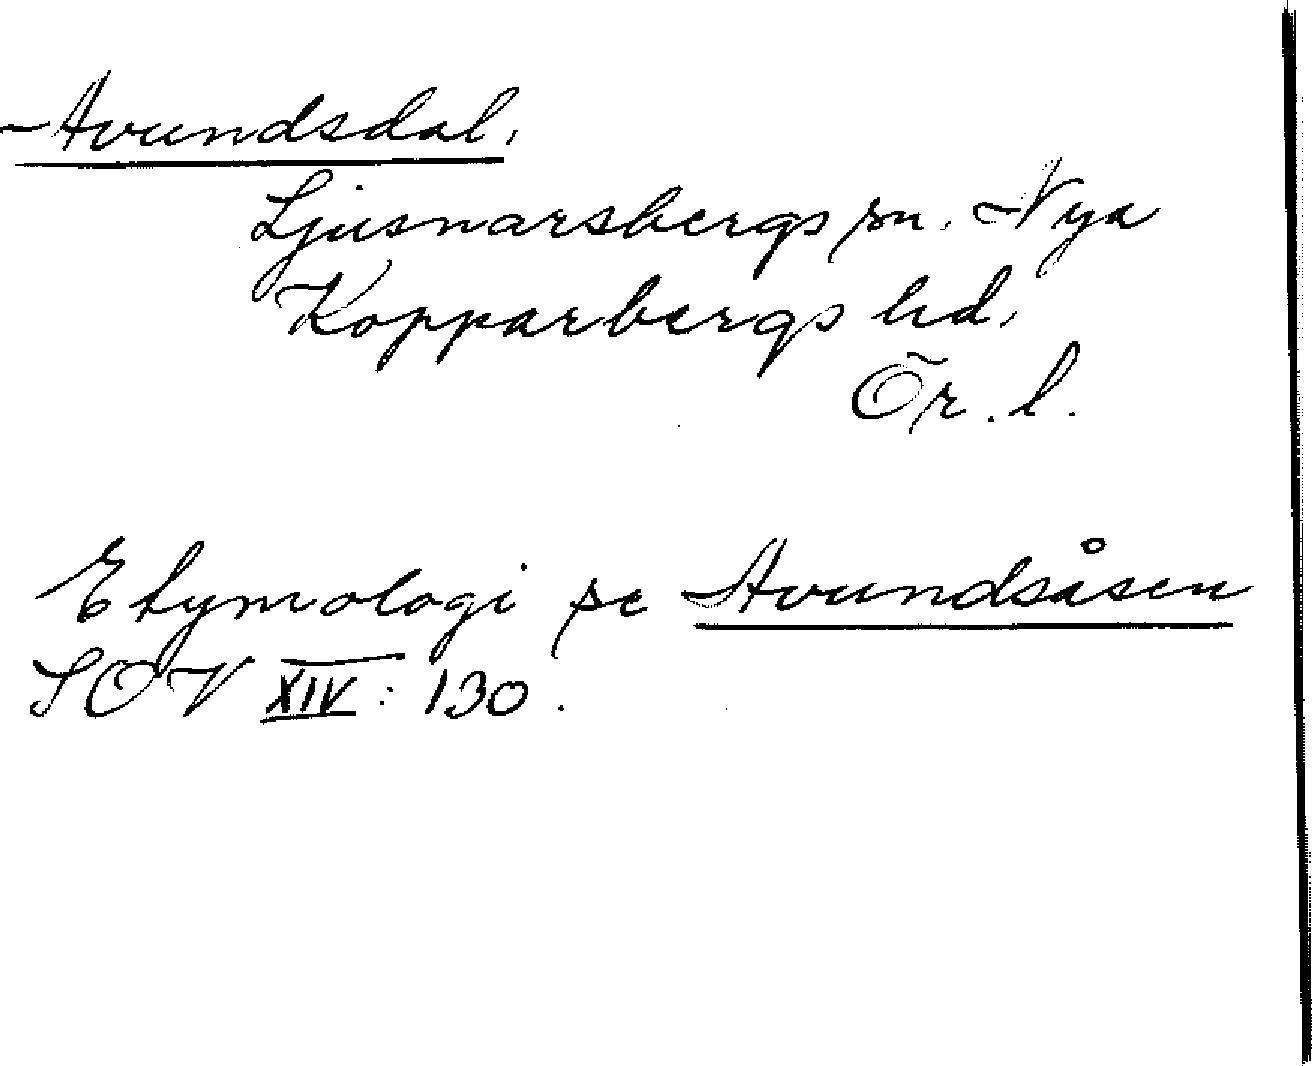 Avundsdal,
Ljusnarsbergs sn. Nya
Kopparbergs hd,
Ör. l.
Etymologi se Avundsåsen
SOV XIV: 130.